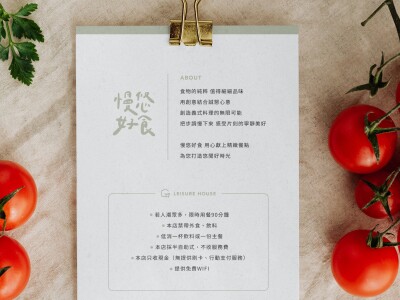 慢悠
好食
ABOUT
食物的純粹 值得細細品味
用創意結合誠懇心意
創造義式料理的無限可能
把步調慢下來 感受片刻的寧靜美好
慢悠好食 用心獻上精緻餐點
為您打造悠閒好時光
LEISURE HOUSE
若人潮眾多，限時用餐90分鐘
本店禁帶外食、飲料
低消一杯飲料或一份主餐
本店採半自助式，不收服務費
本店只收現金（無提供刷卡、行動支付服務）
提供免費WIFI